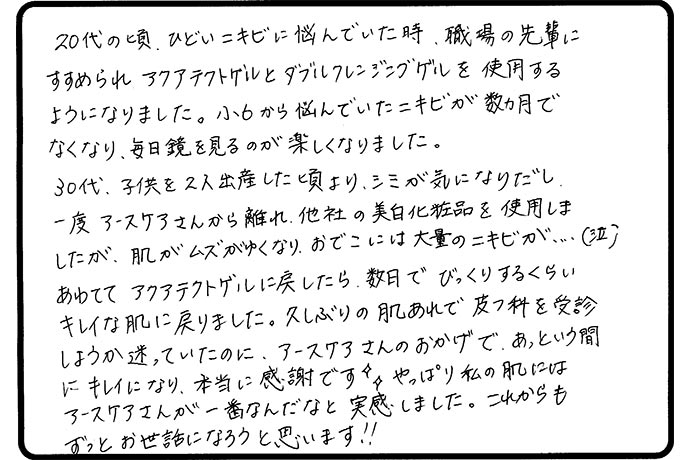 20代の頃、ひどいニキビに悩んでいた時、職場の先輩に
すすめられ アクアテクトゲルとダブルクレンジングゲルを使用する
ようになりました。小6から悩んでいたニキビが数カ月で
なくなり、毎日鏡を見るのが楽しくなりました。
30代、子供を2人出産した頃より、シミが気になりだし、
一度 アースケアさんから離れ、他社の美白化粧品を使用しま
したが、肌がムズがゆくなり、おでこには大量のニキビが…(泣)
あわてて アクアテクトゲルに戻したら、数日で びっくりするくらい
キレイな肌に戻りました。久しぶりの肌あれで皮フ科を受診
しようか迷っていたのに、アースケアさんのおかげで、あっという間
に キレイになり、本当に感謝です✧✧ やっぱり私の肌には
アースケアさんが一番なんだなと 実感しました。これからも
ずっとお世話になろうと思います!!